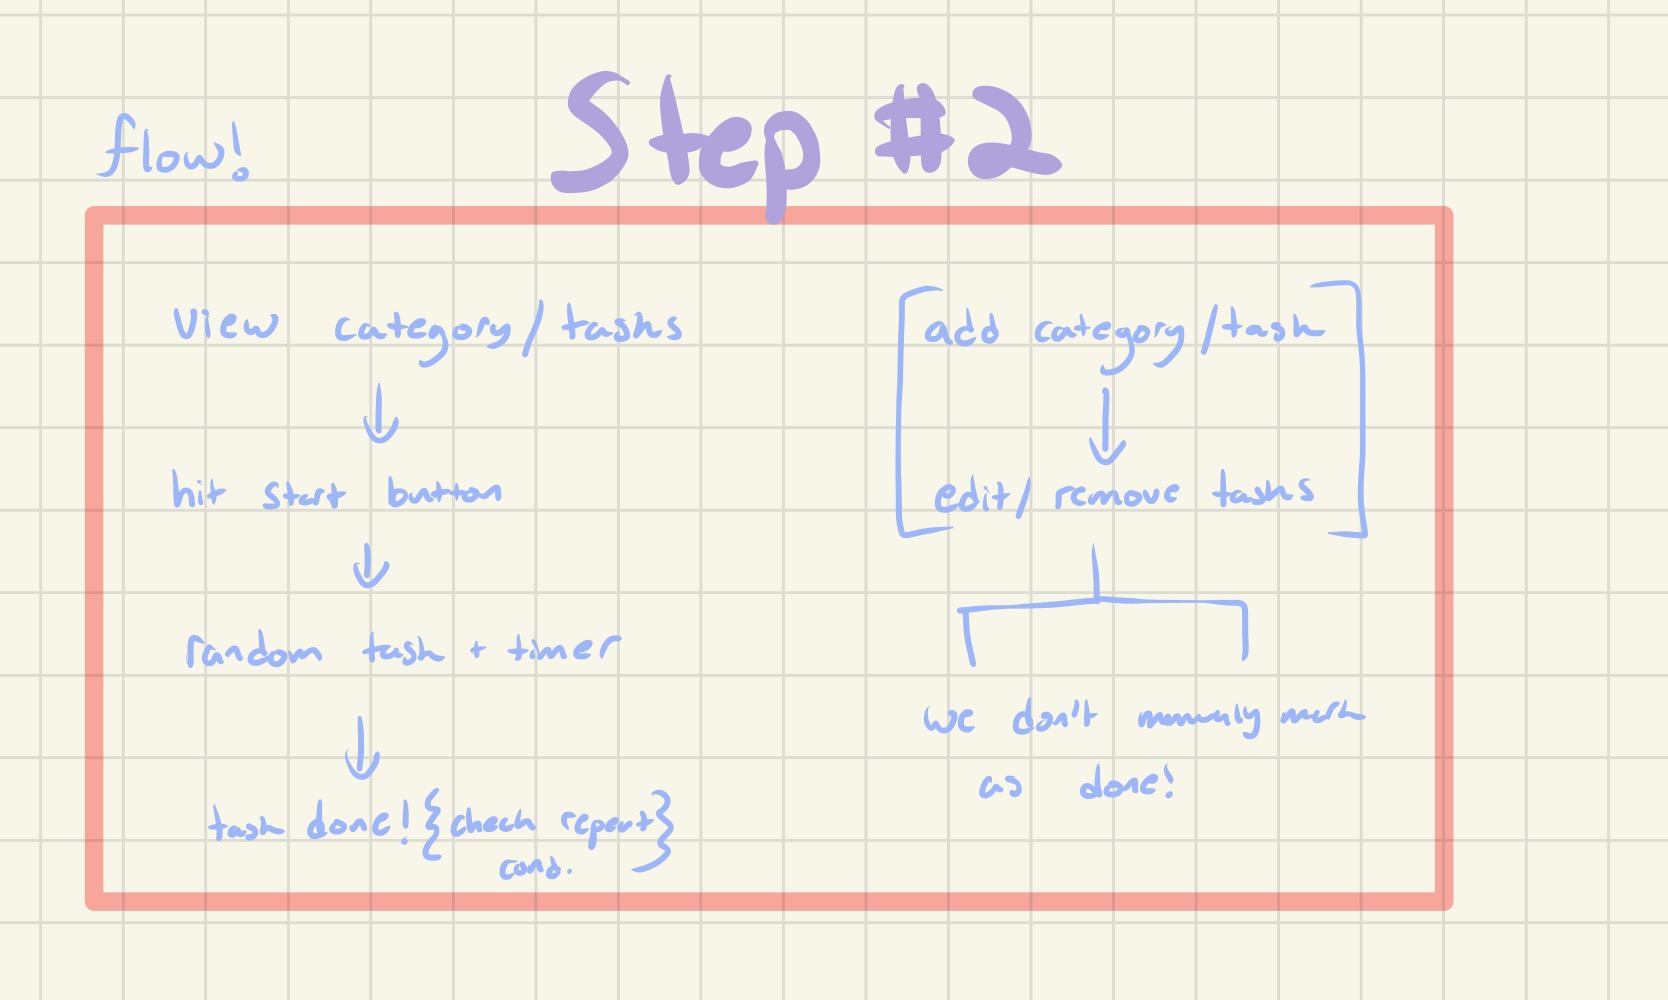 Step #2
flow!
view category/tasks
hit start button
random task + timer
task done! {check repeat}
cond.
add category/task
edit/remove tasks
we don't manually mark
as done!